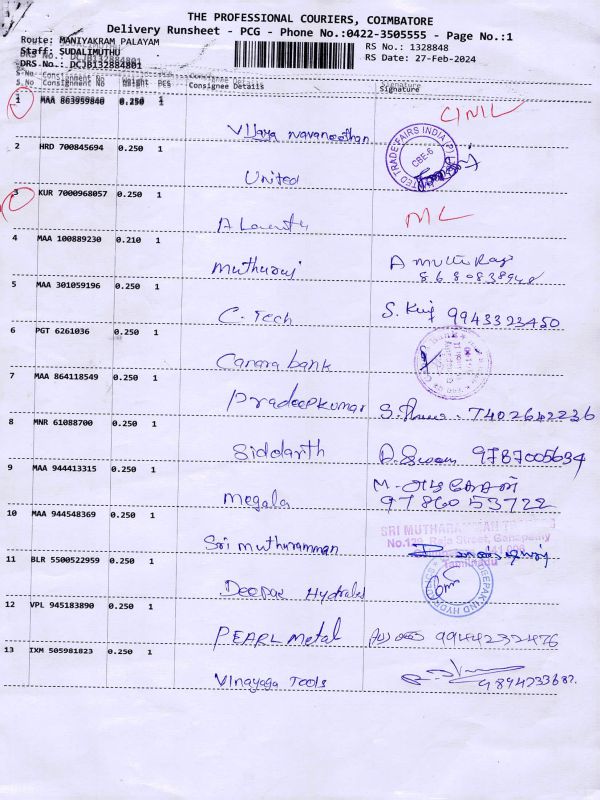 THE PROFESSIONAL COURIERS, COIMBATORE
Delivery Runsheet - PCG - Phone No.:0422-3505555 - Page No.:1
Route: MANIYAKRAM PALAYAM
RS No.: 1328848
Staff: SUDALIMUTHU
RS Date: 27-Feb-2024
DRS-No.: DCJB132884801
S.No Consignment No Weight PCS Consignee Details Signature
1 MAA 863959840 0.250 1 Vijaya Navaneethan
2 HRD 700845694 0.250 1 United
CBE-6
3 KUR 7000968057 0.250 1
4 MAA 100889230 0.210 1 Muthuraj A Muthu Raj
8680838948
5 MAA 301059196 0.250 1 C. Tech 9943323450
6 PGT 6261036 0.250 1 Canara bank
7 MAA 864118549 0.250 1 Pradeepkumar 7402642236
8 MNR 61088700 0.250 1 Siddarth 9787005634
9 MAA 944413315 0.250 1 Megala
9786053722
10 MAA 944548369 0.250 1 Sri Muthuramman
SRI MUTHARAMMAN
Tamilnadu
11 BLR 5500522959 0.250 1 Deepak
12 VPL 945183890 0.250 1 PEARL Metal 9944232476
13 IXM 505981823 0.250 1 Vinayaga Tools